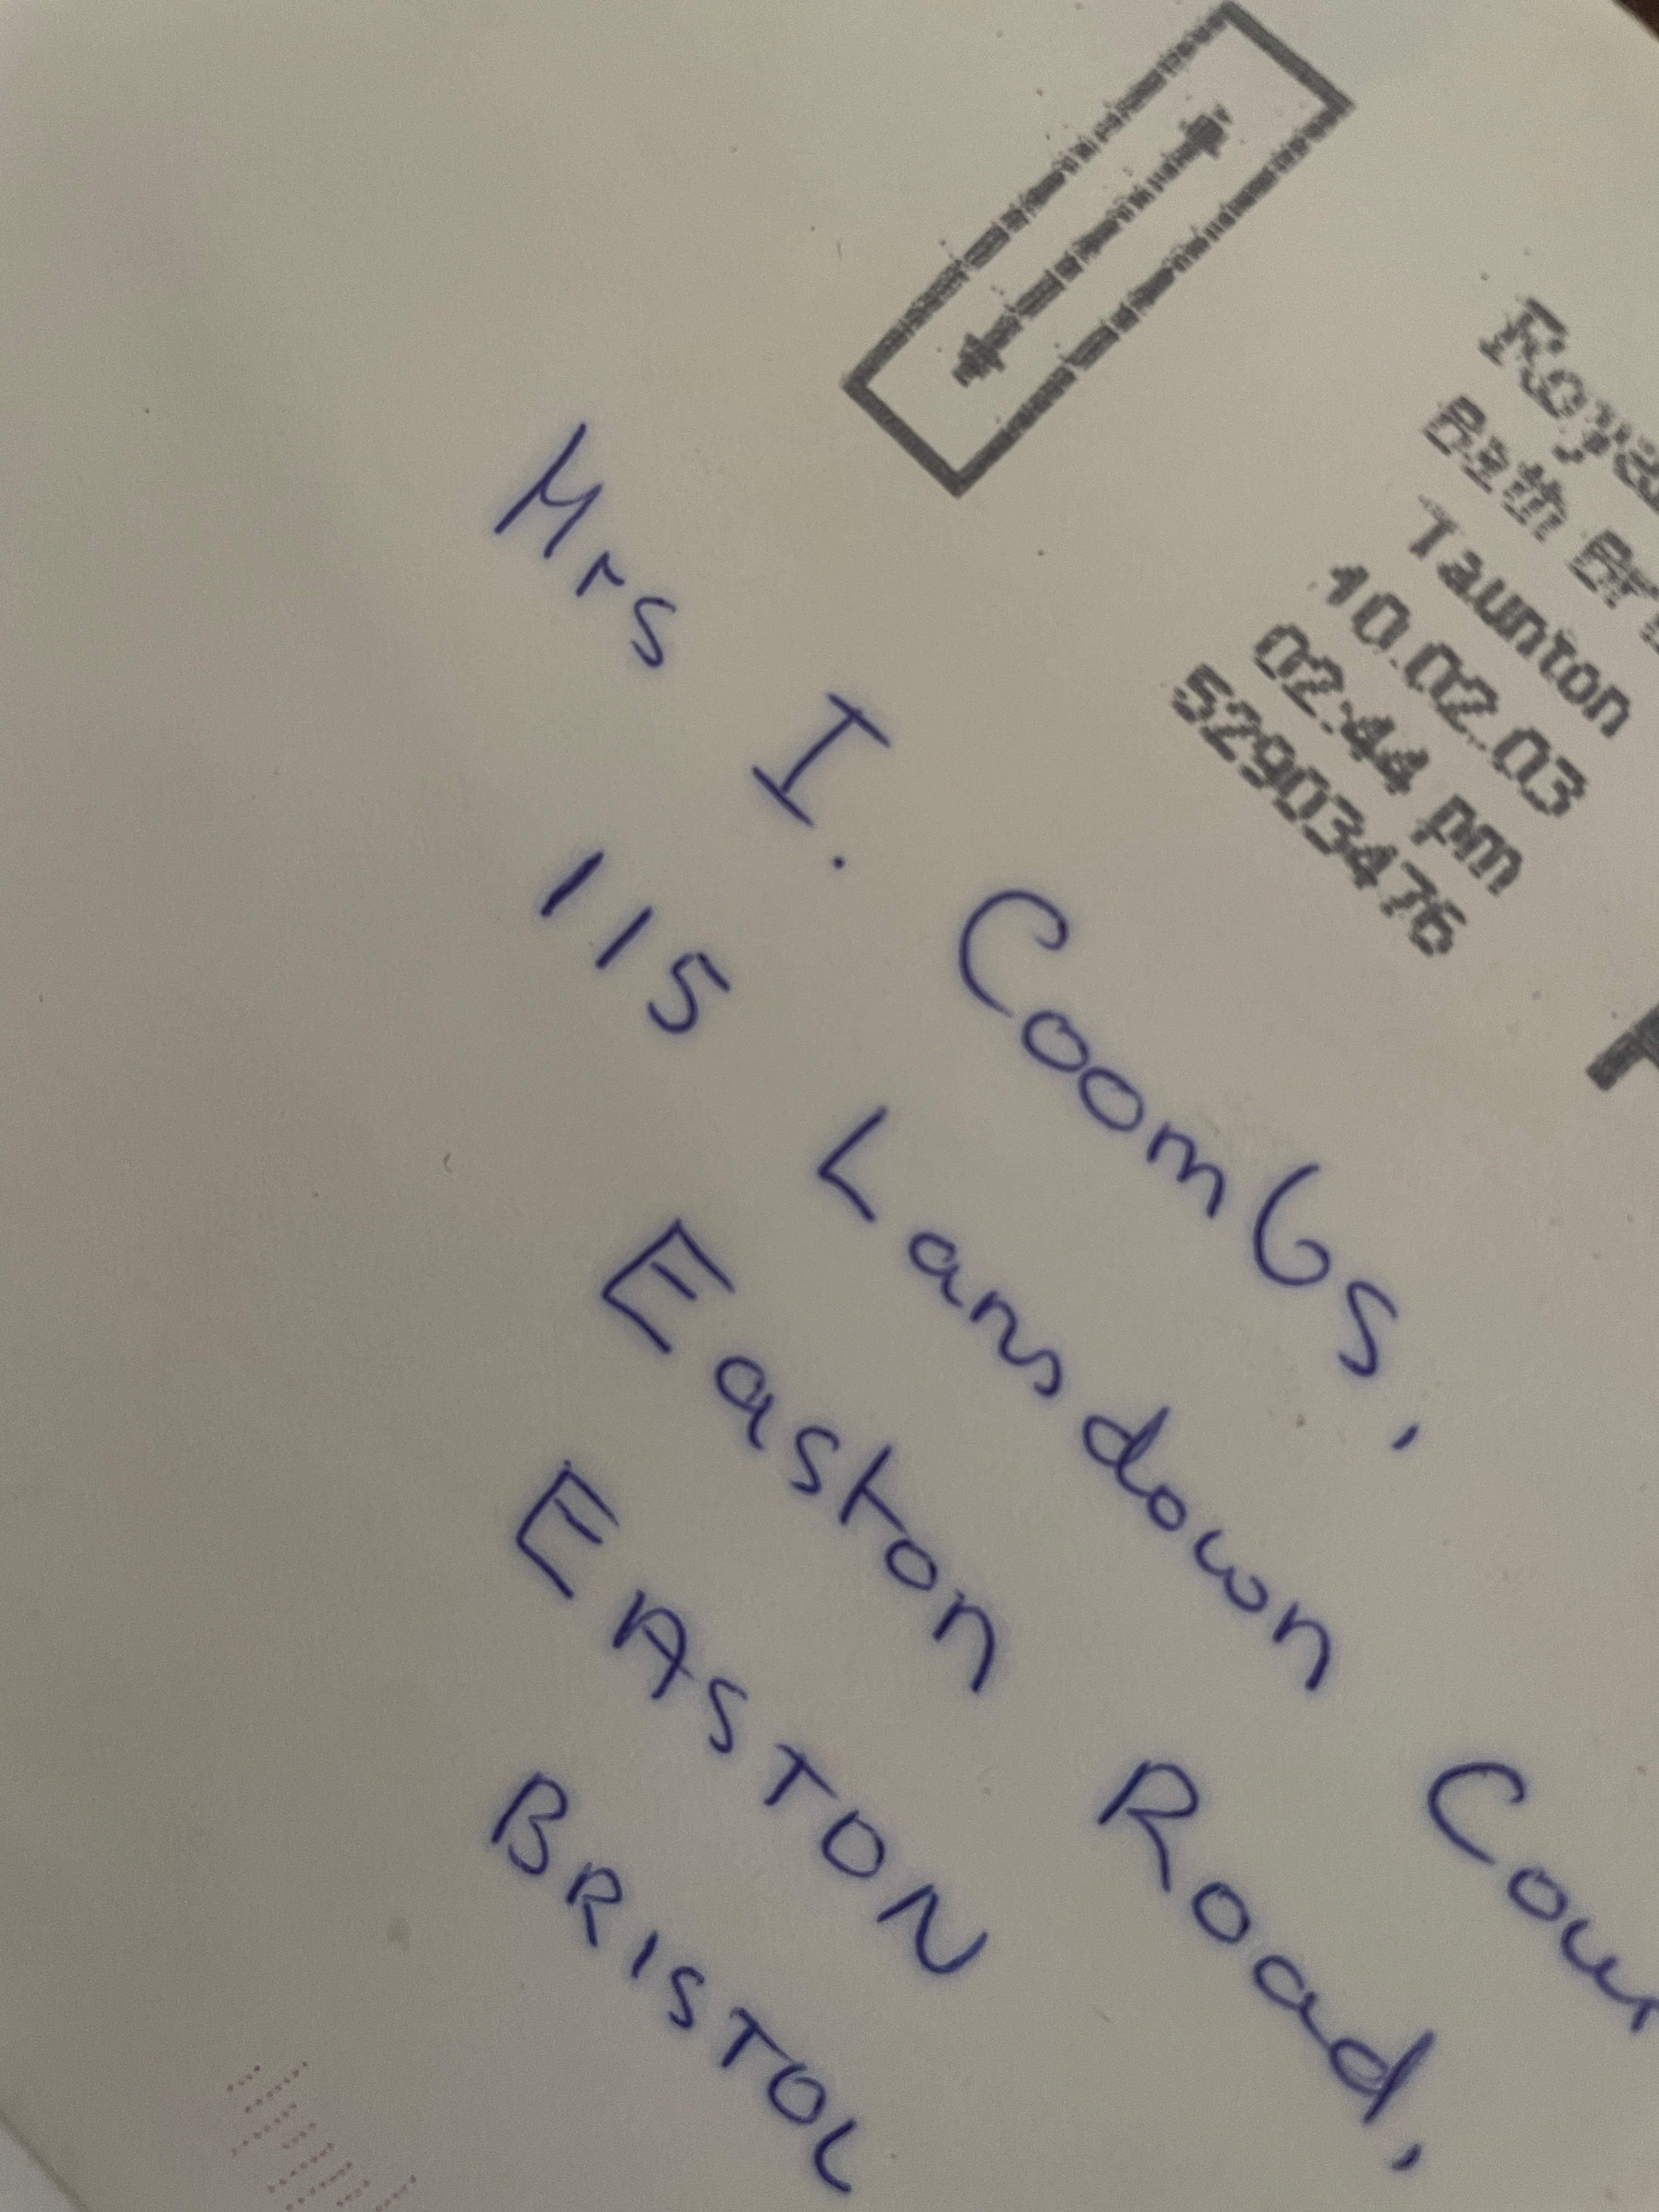 Royal
Bath Br
Taunton
10.02.03
02:44 pm
52903476
Mrs I. Coombs,
115 Lansdown Cour
Easton Road,
EASTON
BRISTOL